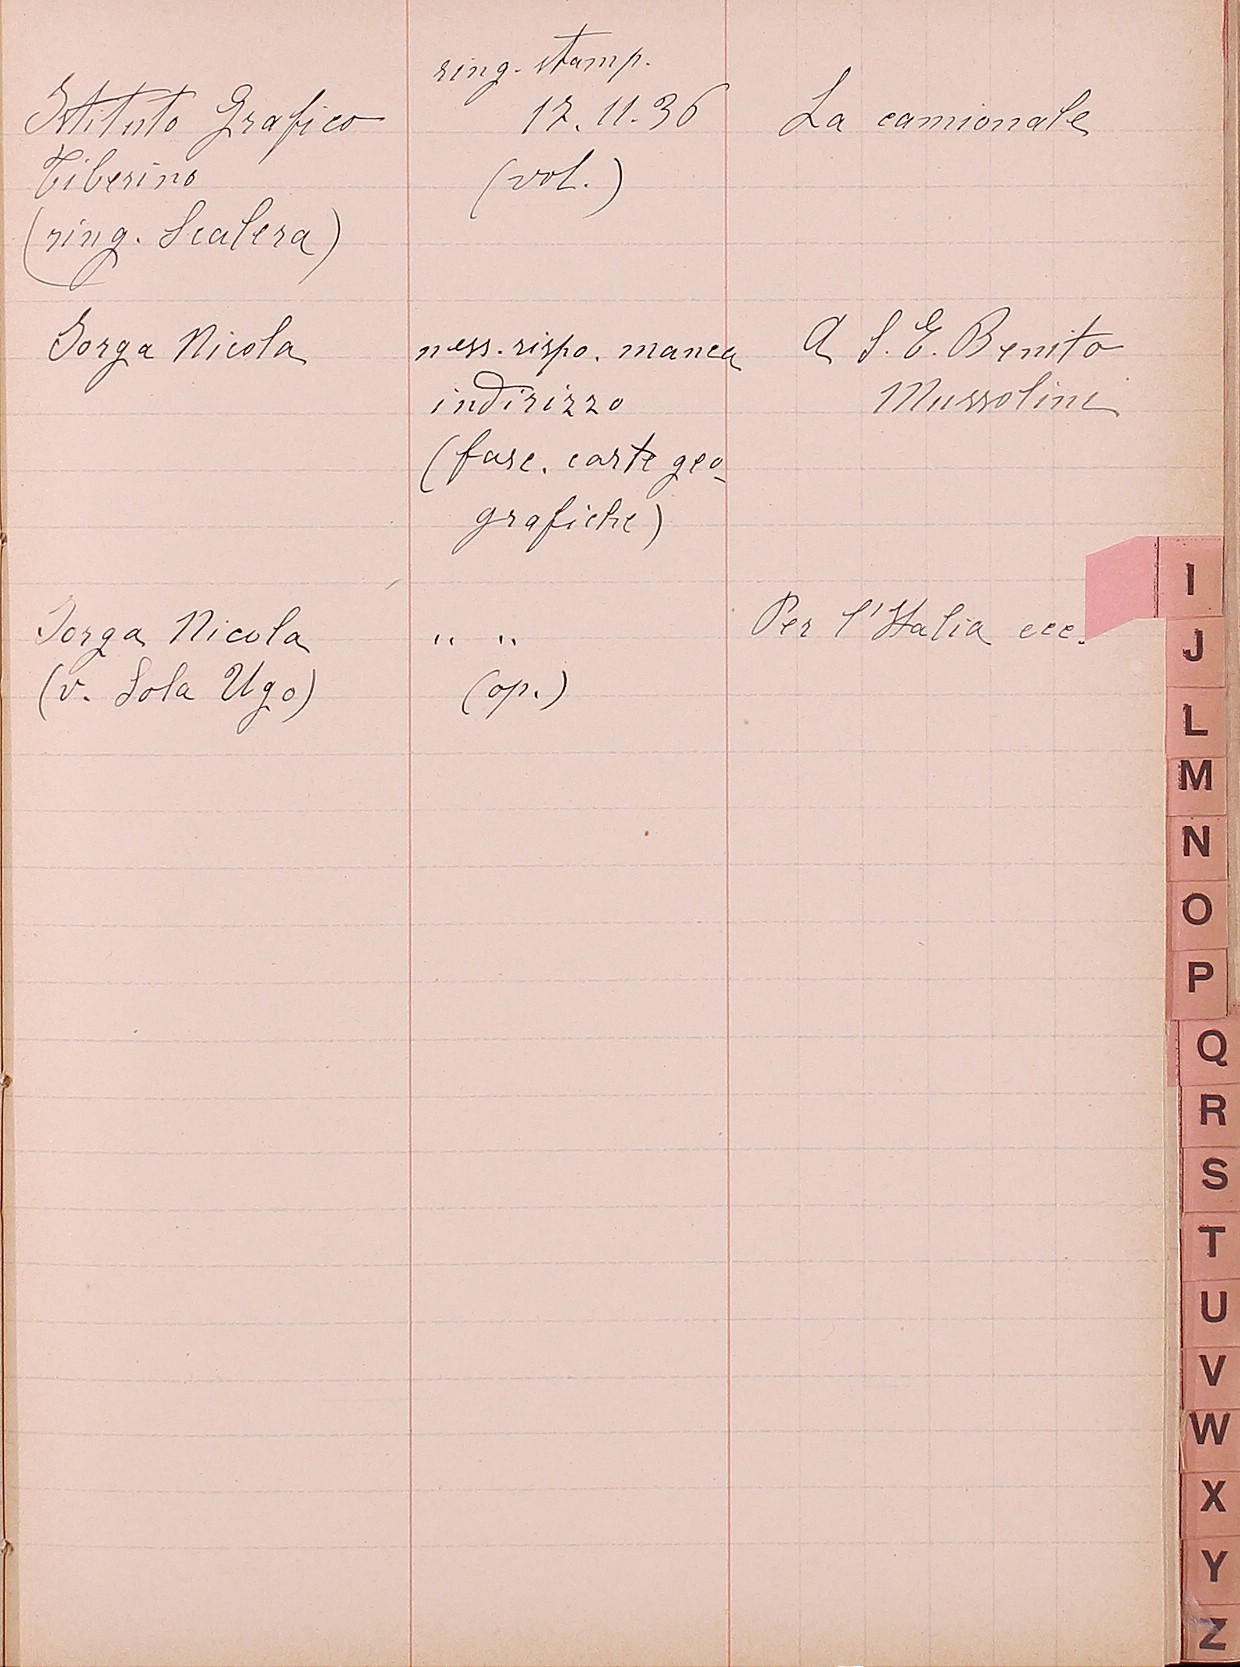 ring. stamp.
Istituto Grafico 17. 11. 36 La camionale
Tiberino (vol.)
(ring. Scalera)
Jorga Nicola ness. rispo. manca A S. E. Benito
indirizzo Mussolini
(fasc. carte geo-
grafiche)
Jorga Nicola " " Per l'Italia ecc.
(v. Sola Ugo) (op.)
I
J
L
M
N
O
P
Q
R
S
T
U
V
W
X
Y
Z